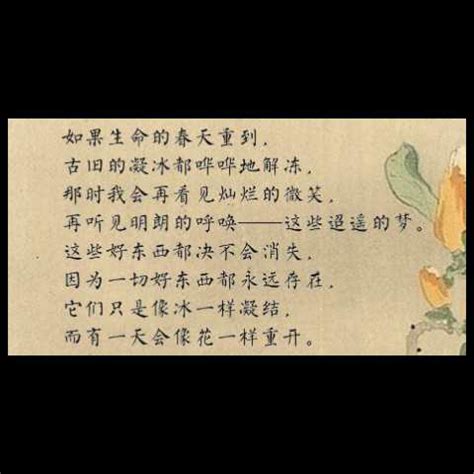 如果生命的春天重到，
古旧的凝冰都哗哗地解冻，
那时我会再看见灿烂的微笑，
再听见明朗的呼唤——这些迢遥的梦。
这些好东西都决不会消失，
因为一切好东西都永远存在，
它们只是像冰一样凝结，
而有一天会像花一样重开。